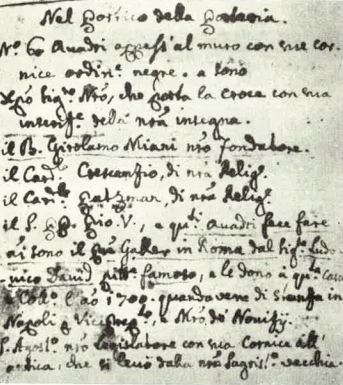 Nel Portico della Porteria.
N.º 6 Quadri appesi al muro con sue cor-
nice ordin.e negre. a sono
Xpo Sig.r Nro, che porta la croce con una
della nrã insegna.
il B. Girolamo Miani nro fondatore.
il Card.l Crescenzio, di nrã Relig.e
il Card.le Gatzman, di nrã Relig.e
il S. PP. Pio V., e qu.ti quadri fece fare
in Roma dal Sig.r Ludo-
vico David pitt.e famoso, e le donò a q.ta Casa
e Coll.o l'aõ 1709. quando vene di Stanza in
Napoli Vice e Mrõ de Novizzj.
S. Agost.o nro legislatore con sua Cornice all'
antica, che si levò dalla nrã Sagris.a vecchia.